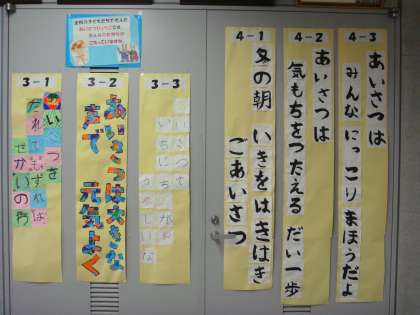 4-3
あいさつは
みんなにっこり まほうだよ
4-2
あいさつは
気もちをつたえる だい一歩
4-1
冬の朝 いきをはきはき
ごあいさつ
3-3
うれしいな
3-2
あいさつは大きな
声で 元気よく
3-1
せかいのわ